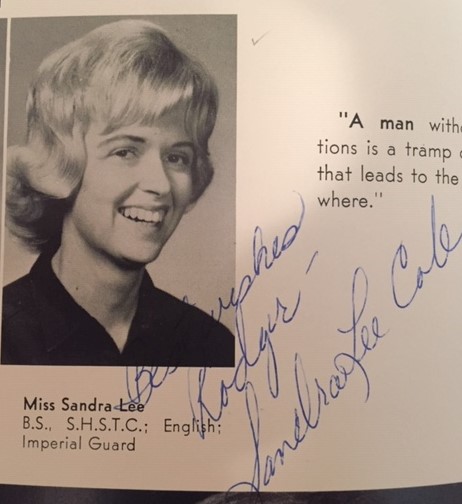 "A man
tions is a tramp
that leads to the
where."
Best wishes
Rodger -
Sandra Lee Cole
Miss Sandra Lee
B.S., S.H.S.T.C.; English;
Imperial Guard